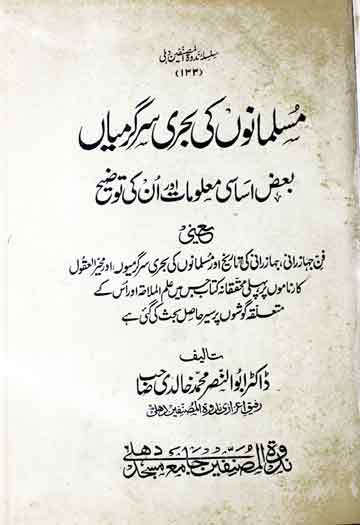 سلسلہ ندوۃ المصنفین دہلی
(۱۳۳)
مسلمانوں کی بحری سرگرمیاں
بعض اساسی معلومات اور اُن کی توضیح
یعنی
فن جہاز رانی، جہاز رانی کی تاریخ اور مسلمانوں کی بحری سرگرمیوں، اور محیر العقول
کارناموں پر پہلی محققانہ کتاب جس میں علم الملاحۃ اور اس کے
متعلقہ گوشوں پر سیر حاصل بحث کی گئی ہے
تالیف
ڈاکٹر ابوالنصر محمد خالدی صاحب
رفیق اعزازی ندوۃ المصنفین دھلی
ندوۃ المصنفین جامع مسجد دھلی